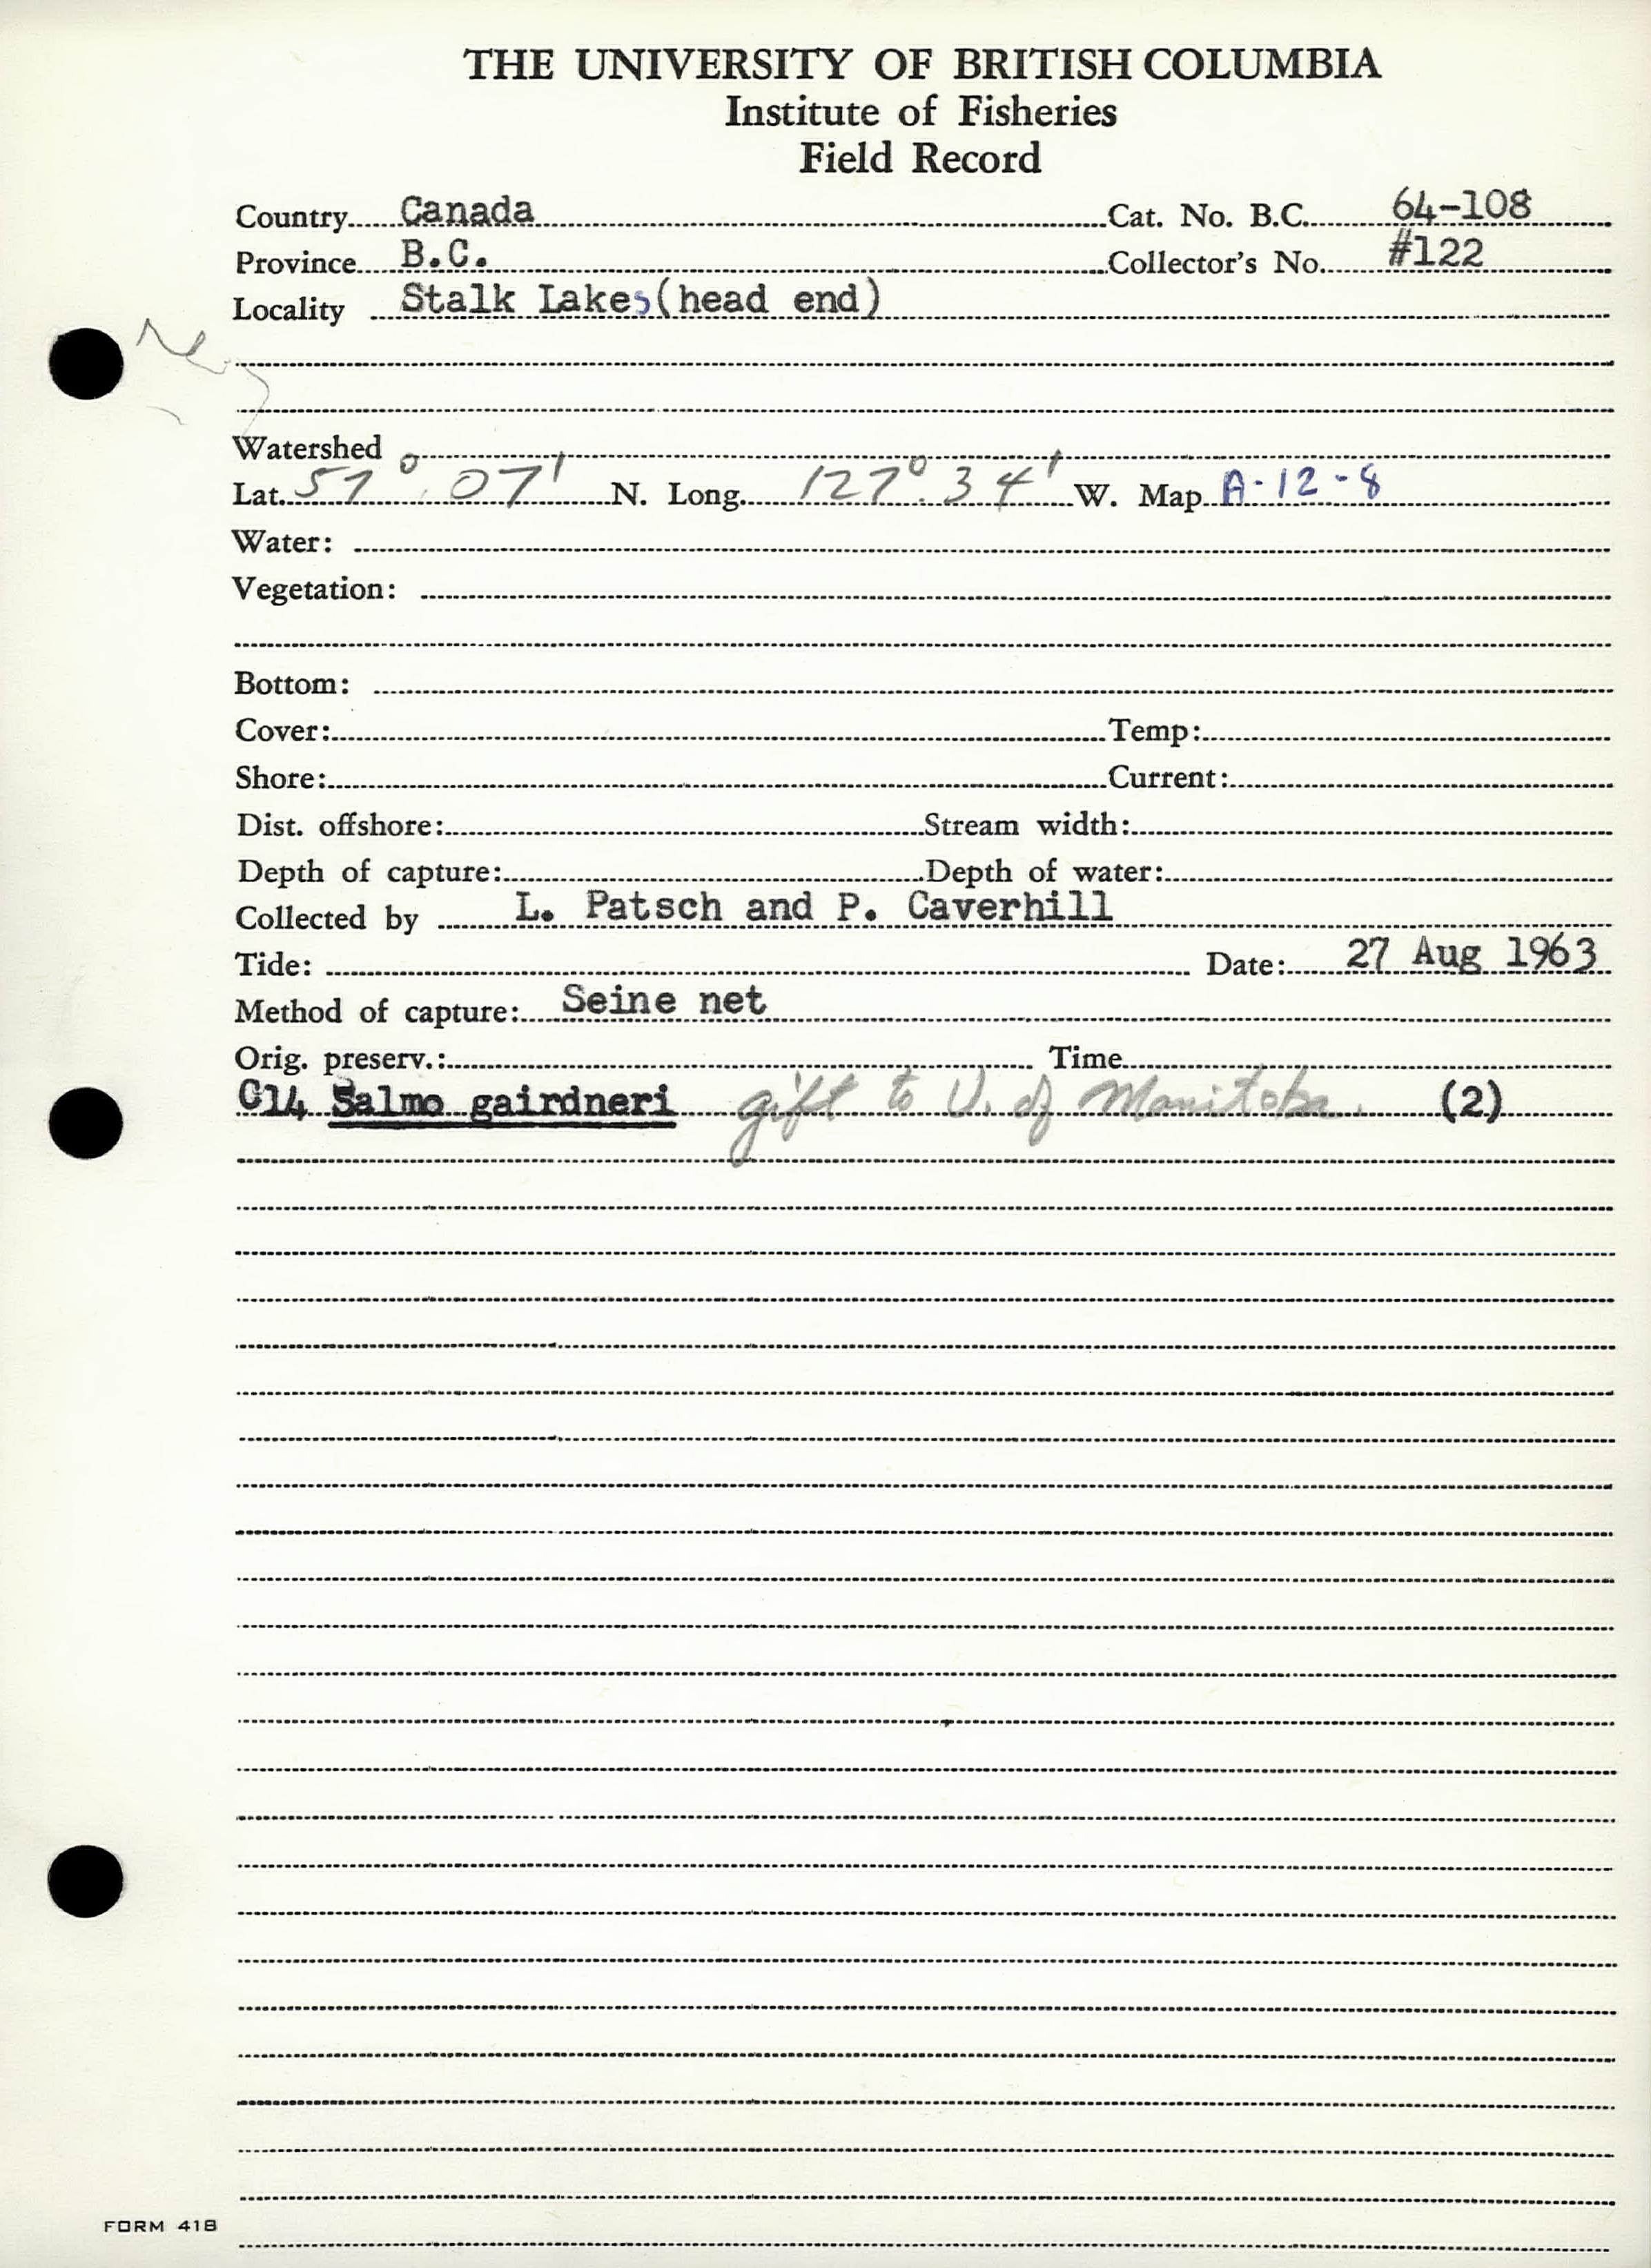 THE UNIVERSITY OF BRITISH COLUMBIA
Institute of Fisheries
Field Record
Country Canada Cat. No. B.C. 64-108
Province B.C. Collector's No. #122
Locality Stalk Lakes (head end)
Watershed
Lat. 57° 07' N. Long. 127° 34' W. Map A-12-8
Water:
Vegetation:
Bottom:
Cover: Temp:
Shore: Current:
Dist. offshore: Stream width:
Depth of capture: Depth of water:
Collected by L. Patsch and P. Caverhill
Tide: Date: 27 Aug 1963
Method of capture: Seine net
Orig. preserv.: Time
C14 Salmo gairdneri gift to U. of Manitoba. (2)
FORM 418